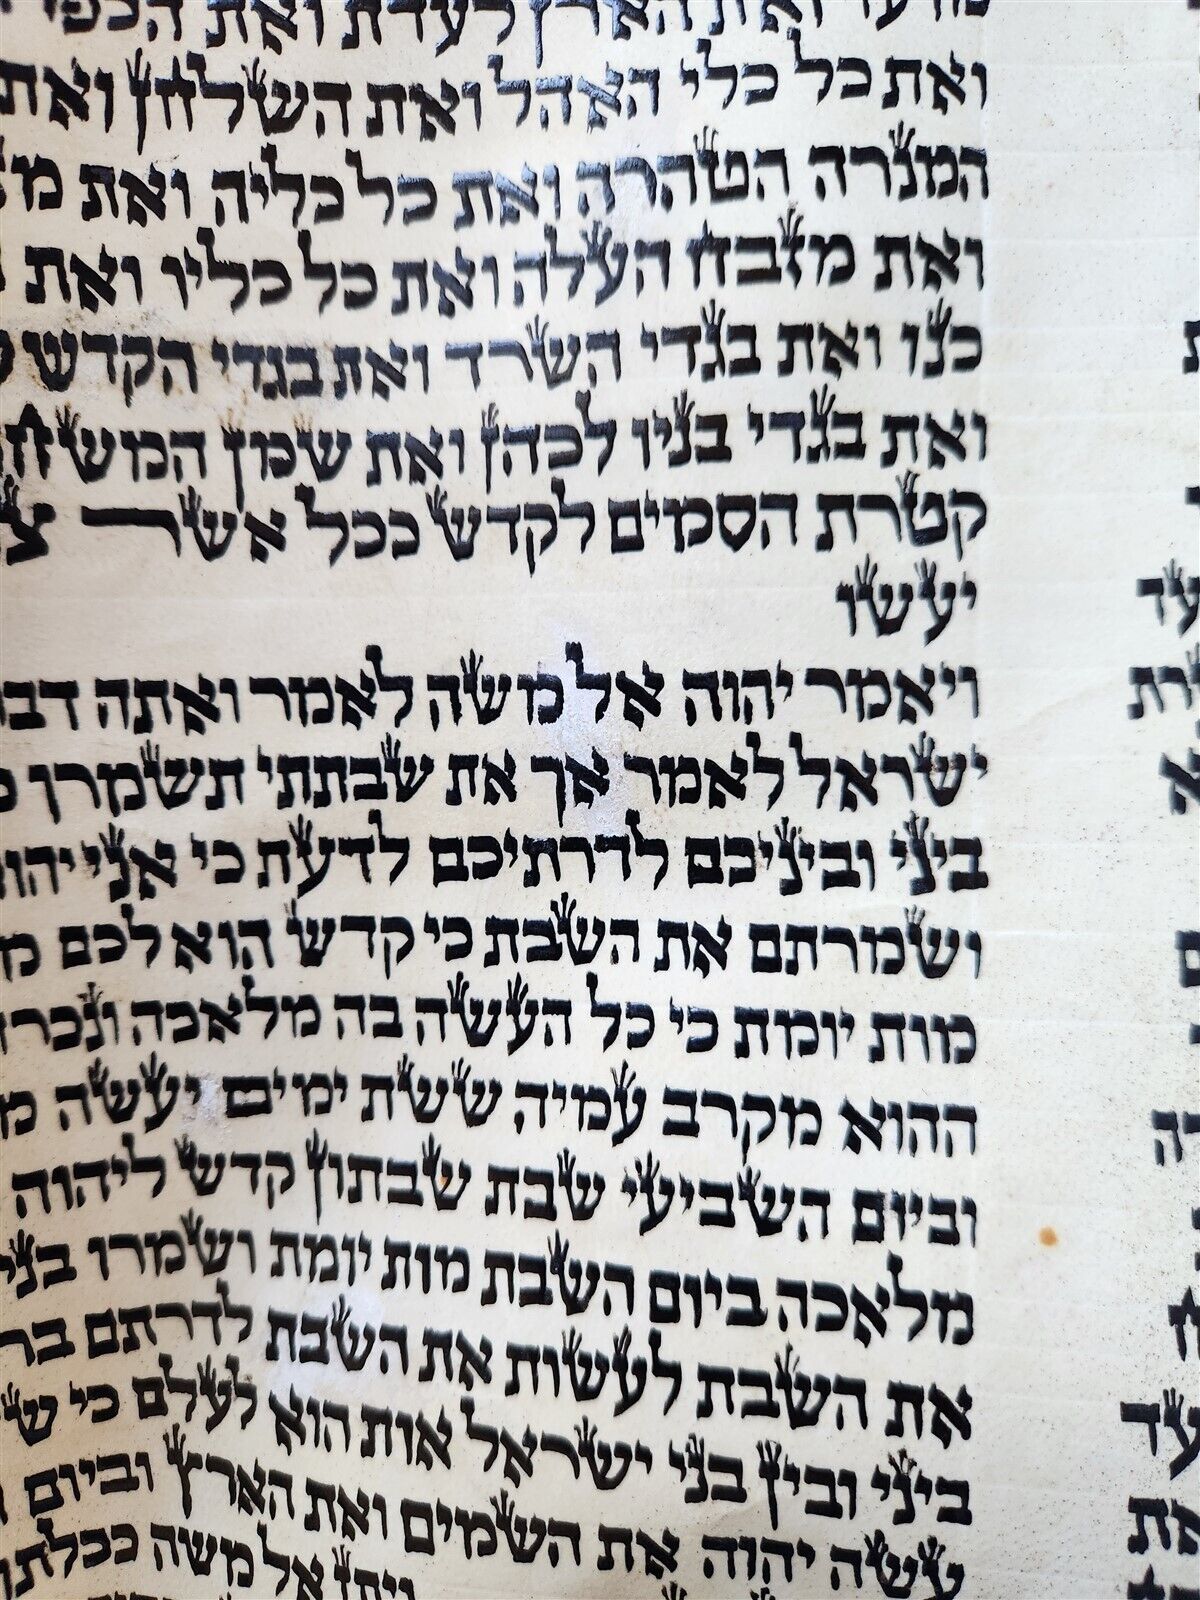 ואת הארן לעדת ואת
ואת כל כלי האהל ואת השלחן ואת
המנרה הטהרה ואת כל כליה ואת
ואת מזבח העלה ואת כל כליו ואת
כנו ואת בגדי השרד ואת בגדי הקדש
ואת בגדי בניו לכהן ואת שמן המשחה
קטרת הסמים לקדש ככל אשר
יעשו
ויאמר יהוה אל משה לאמר ואתה
ישראל לאמר אך את שבתתי תשמרו
ביני וביניכם לדרתיכם לדעת כי אני
ושמרתם את השבת כי קדש הוא לכם
מות יומת כי כל העשה בה מלאכה
ההוא מקרב עמיה ששת ימים יעשה
וביום השביעי שבת שבתון קדש ליהוה
מלאכה ביום השבת מות יומת ושמרו בני
את השבת לעשות את השבת לדרתם
ביני ובין בני ישראל אות הוא לעלם כי
עשה יהוה את השמים ואת הארץ וביום
ויתן אל משה ככלתו